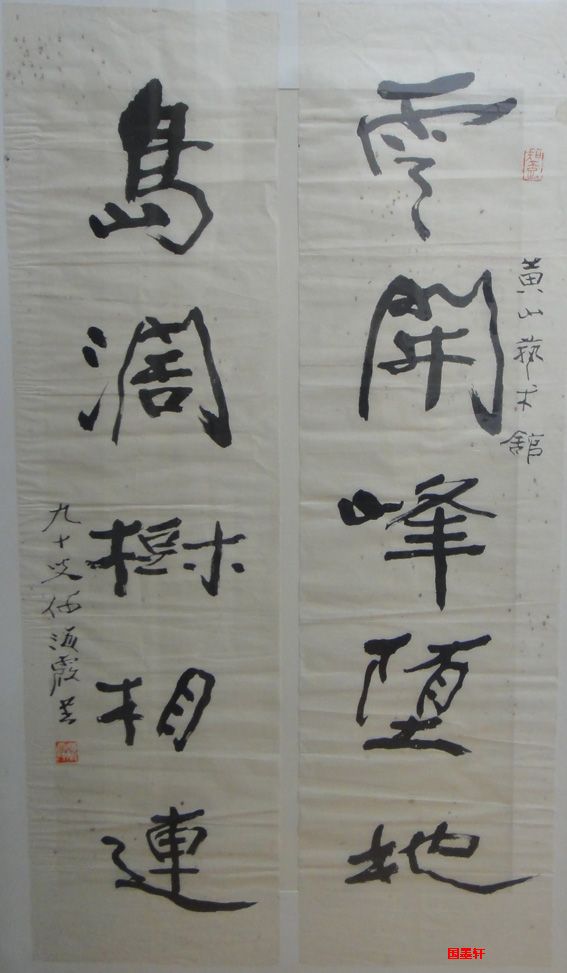 黄山藝术館
雲開峰墮地
島濶樹相連
九十叟何海霞書
国墨轩